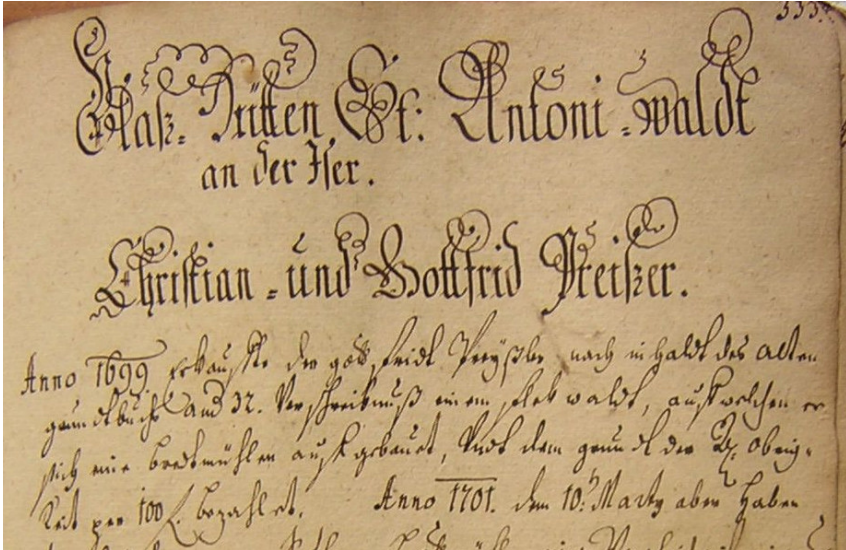 533.
Glaß-Hütten St: Antoni-waldt
an der Iser.
Christian-und Gottfrid Preißer.
Anno 1699 Erkauffte der gottfridt Preyßler nach inhaldt des alten
grundtbuchs and 32. Verschreibnuß einen fleck waldt, auf welchen er
sich eine bredtmühlen aufgebauet, Undt dem grundt der G. Obrig-
keit per 100 f. bezahlet. Anno 1701. dem 10. Marty aber haben